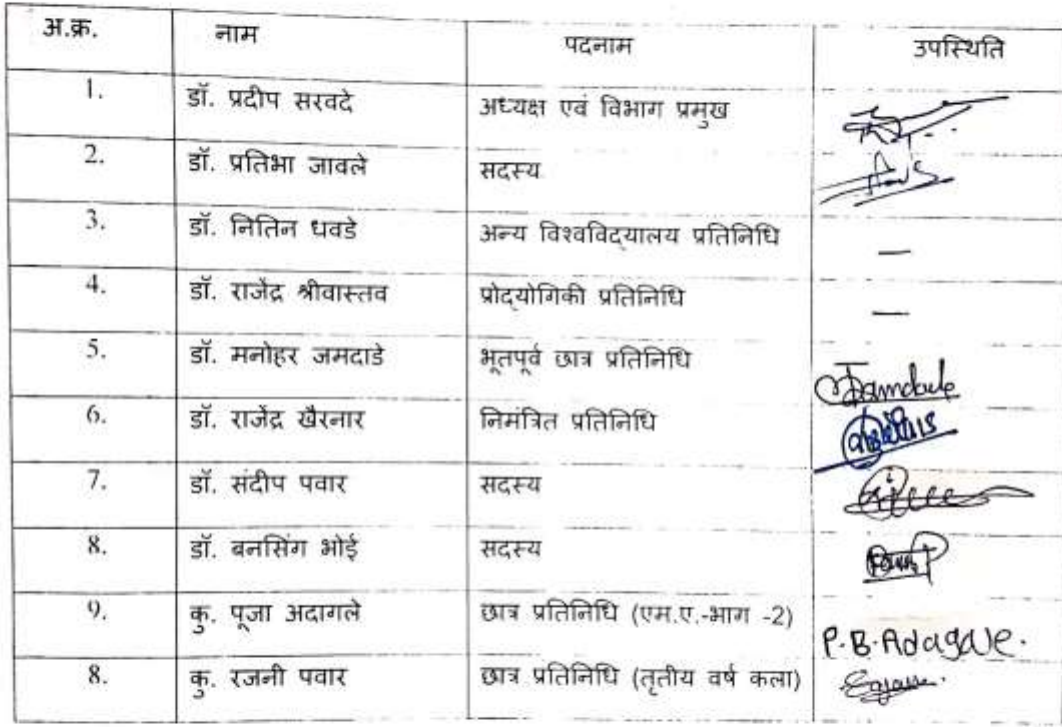 अ.क्र. नाम पदनाम उपस्थिति
1. डॉ. प्रदीप सरवदे अध्यक्ष एवं विभाग प्रमुख
2. डॉ. प्रतिभा जावले सदस्य
3. डॉ. नितिन धवडे अन्य विश्वविद्यालय प्रतिनिधि —
4. डॉ. राजेंद्र श्रीवास्तव प्रोद्योगिकी प्रतिनिधि —
5. डॉ. मनोहर जमदाडे भूतपूर्व छात्र प्रतिनिधि Jamdade
6. डॉ. राजेंद्र खैरनार निमंत्रित प्रतिनिधि
7. डॉ. संदीप पवार सदस्य
8. डॉ. बनसिंग भोई सदस्य
9. कु. पूजा अदागले छात्र प्रतिनिधि (एम.ए.-भाग -2) P.B.Adagale.
8. कु. रजनी पवार छात्र प्रतिनिधि (तृतीय वर्ष कला)